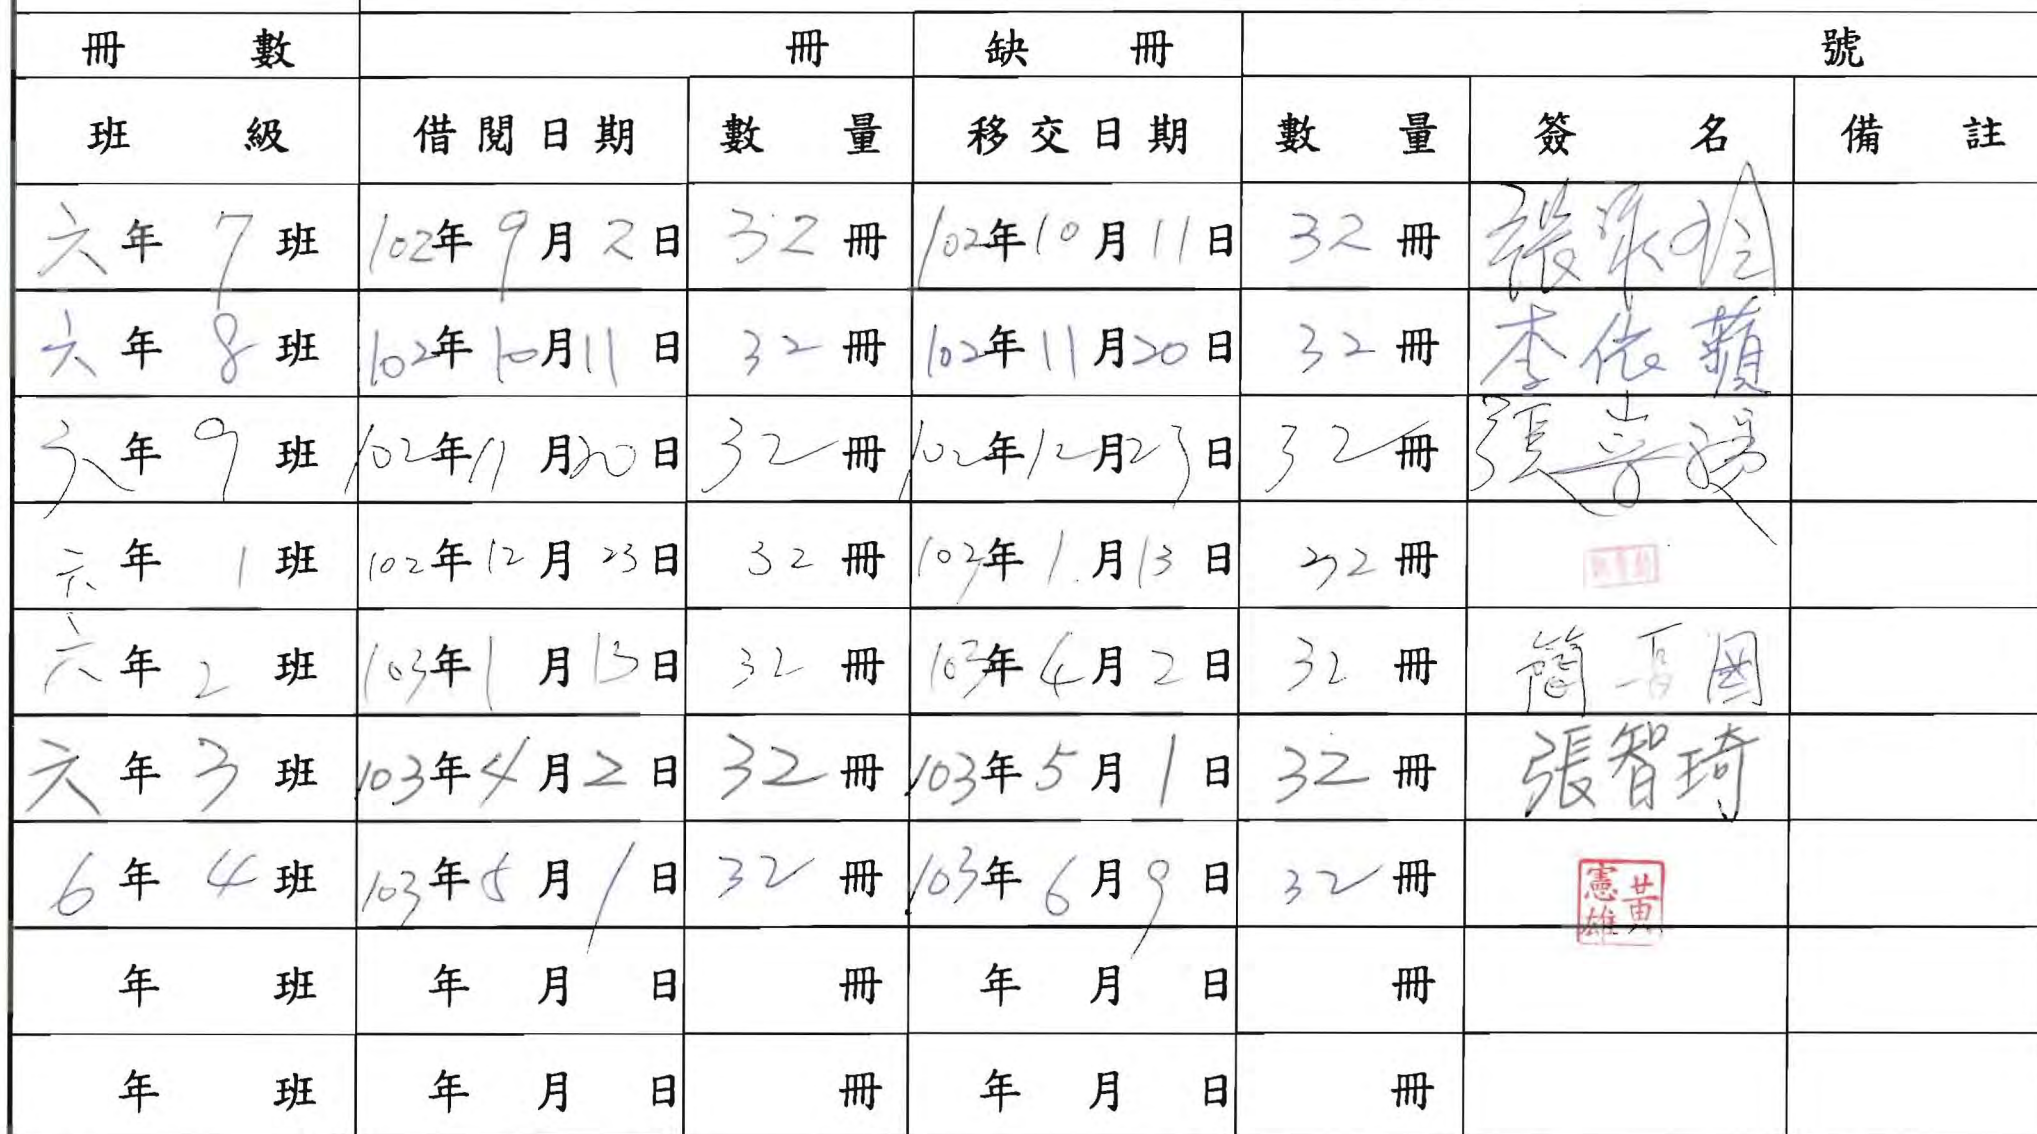 冊 數 冊 缺 冊 號
班 級 借閱日期 數 量 移交日期 數 量 簽 名 備 註
六年 7 班 102年 9月 2日 32 冊 102年10月11日 32 冊 張
六年 8 班 102年10月11日 32 冊 102年11月20日 32 冊 李依蘋
六年 9 班 102年11月20日 32 冊 102年12月23日 32 冊 張
六年 1 班 102年12月23日 32 冊 103年 1月13日 32 冊
六年 2 班 103年 1月13日 32 冊 103年 4月 2日 32 冊 簡 國
六年 3 班 103年 4月 2日 32 冊 103年 5月 1日 32 冊 張智琦
6年 4 班 103年 5月 1日 32 冊 103年 6月 9日 32 冊 黃憲雄
年 班 年 月 日 冊 年 月 日 冊
年 班 年 月 日 冊 年 月 日 冊